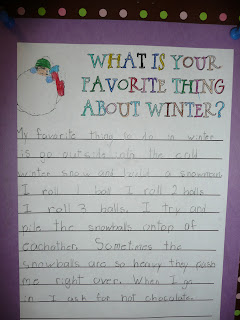 WHAT IS YOUR
FAVORITE THING
ABOUT WINTER?
My favorite thing to do in winter
is go outside into the cold
winter snow and build a snowman
I roll 1 ball I roll 2 balls
I roll 3 balls. I try and
pile the snowballs ontop of
eachother. Sometimes the
snowballs are so heavy they push
me right over. When I go
in I ask for hot chocolate.